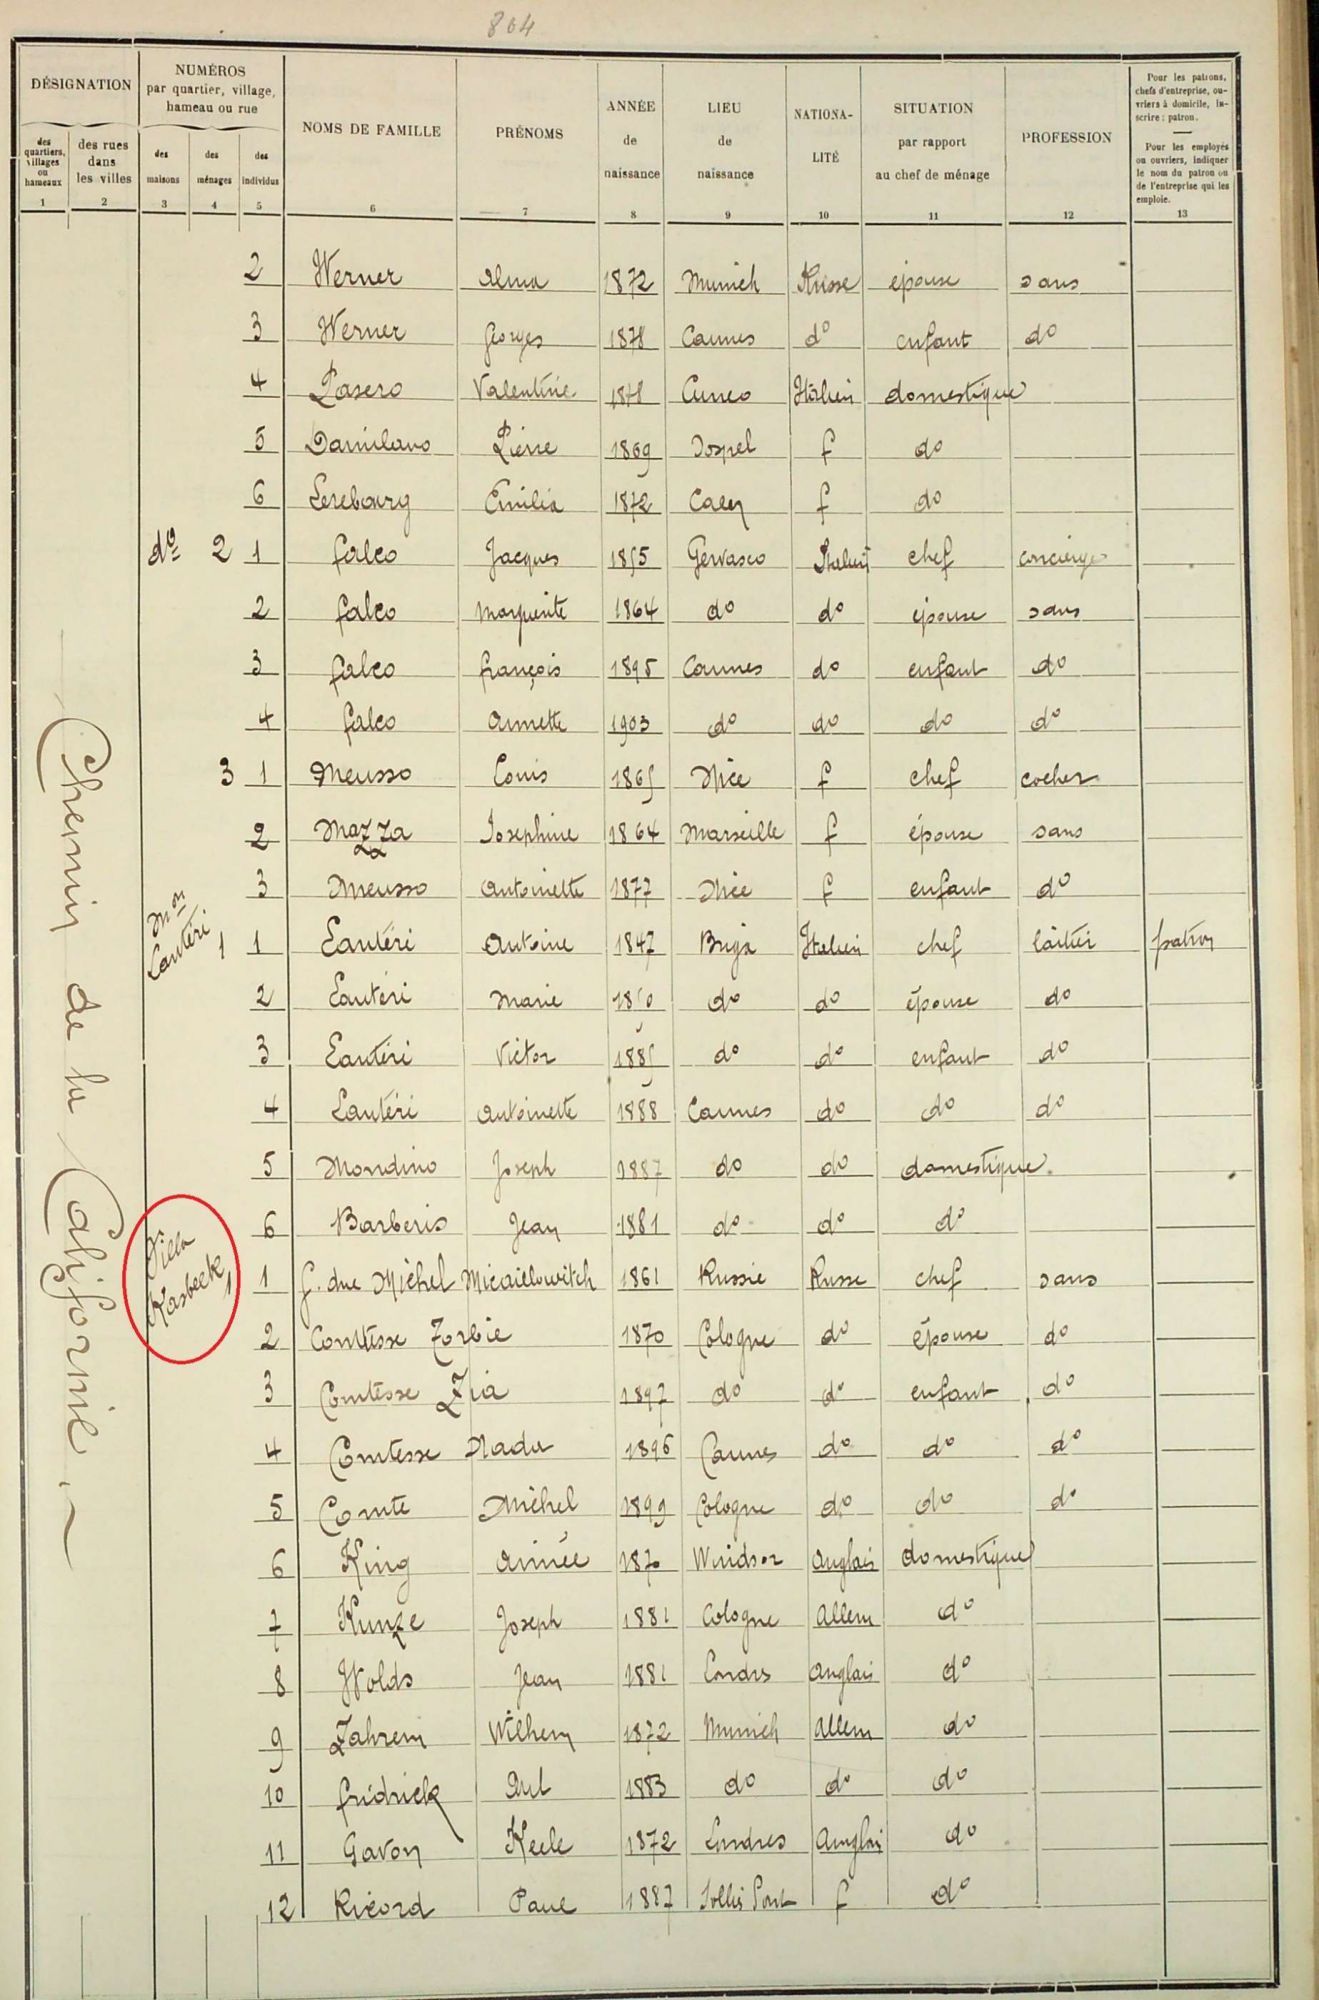 804
DÉSIGNATION
des quartiers, villages ou hameaux
des rues dans les villes
NUMÉROS par quartier, village, hameau ou rue
des maisons
des ménages
des individus
NOMS DE FAMILLE
PRÉNOMS
ANNÉE de naissance
LIEU de naissance
NATIONA-LITÉ
SITUATION par rapport au chef de ménage
PROFESSION
Pour les patrons, chefs d'entreprise, ouvriers à domicile, inscrire : patron.
Pour les employés ou ouvriers, indiquer le nom du patron ou de l'entreprise qui les emploie.
1 2 3 4 5 6 7 8 9 10 11 12 13
Chemin de la Californie
2 Werner Alma 1872 Munich Russe épouse sans
3 Werner Georges Cannes do enfant do
4 Pasero Valentine Cuneo Italien domestique
5 Damilano Pierre 1869 Sospel f do
6 Lerebourg Emilia 1872 Caen f do
do 2 1 falco Jacques 1855 Gervasco Italien chef concierge
2 falco Marguerite 1864 do do épouse sans
3 falco françois 1895 Cannes do enfant do
4 falco Annette 1903 do do do do
3 1 Meusso Louis 1865 Nice f chef cocher
2 Mazza Josephine 1864 Marseille f épouse sans
3 Meusso Antoinette 1877 Nice f enfant do
Mon Lantéri 1 1 Lantéri Antoine 1847 Briga Italien chef laitier patron
2 Lantéri Marie 1850 do do épouse do
3 Lantéri Victor 1885 do do enfant do
4 Lantéri Antoinette 1888 Cannes do do do
5 Mondino Joseph 1887 do do domestique
6 Barberis Jean 1881 do do do
Villa Kasbeck 1 1 G. duc Michel Micaïlowitch 1861 Russie Russe chef sans
2 Comtesse Torbie 1870 Cologne do épouse do
3 Comtesse Zia 1897 do do enfant do
4 Comtesse Nada 1896 Cannes do do do
5 Comte Michel 1899 Cologne do do do
6 King Aimée 1870 Windsor Anglais domestique
7 Kunze Joseph 1881 Cologne Allem do
8 Wolds Jean 1881 Londres Anglais do
9 Zahrem Wilhem 1872 Munich Allem do
10 fridrick 1883 do do do
11 Gavon Keele 1872 Londres Anglai do
12 Ricord Paul 1887 Solliès Pont f do